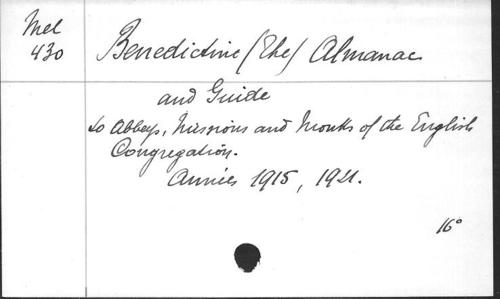 Mel
430
Benedictine (The) Almanac
and Guide
to Abbeys, Missions and Monks of the English
Congregation.
Années 1915, 1921.
16°